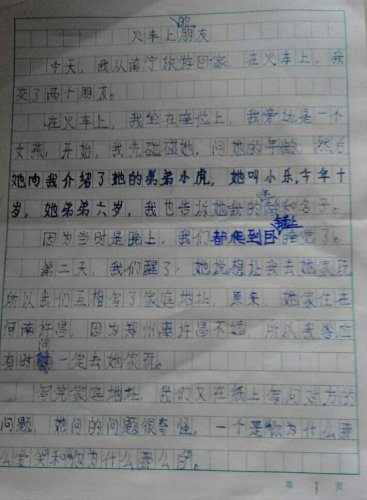 火车上的朋友
今天，我从南宁旅游回家，在火车上，我
交了两个朋友。
在火车上，我坐在座位上，我旁边是一个
女孩，开始，我先碰碰她，问她的年龄，然后
她向我介绍了她的弟弟小虎，她叫小乐，今年十
岁，她弟弟六岁，我也告诉她我的年龄和名子。
因为当时是晚上，我们都爬到铺上睡觉了。
第二天，我们醒了，她说想让我去她家玩
所以我们互相写了家庭地址，原来，她家住在
河南许昌，因为郑州离许昌不远，所以我答应
有时间一定去她家玩。
写完家庭地址，我们又在纸上写问对方的
问题，她问的问题很奇怪，一个是你为什么要
么爱笑和你为什么要么白。
第1页